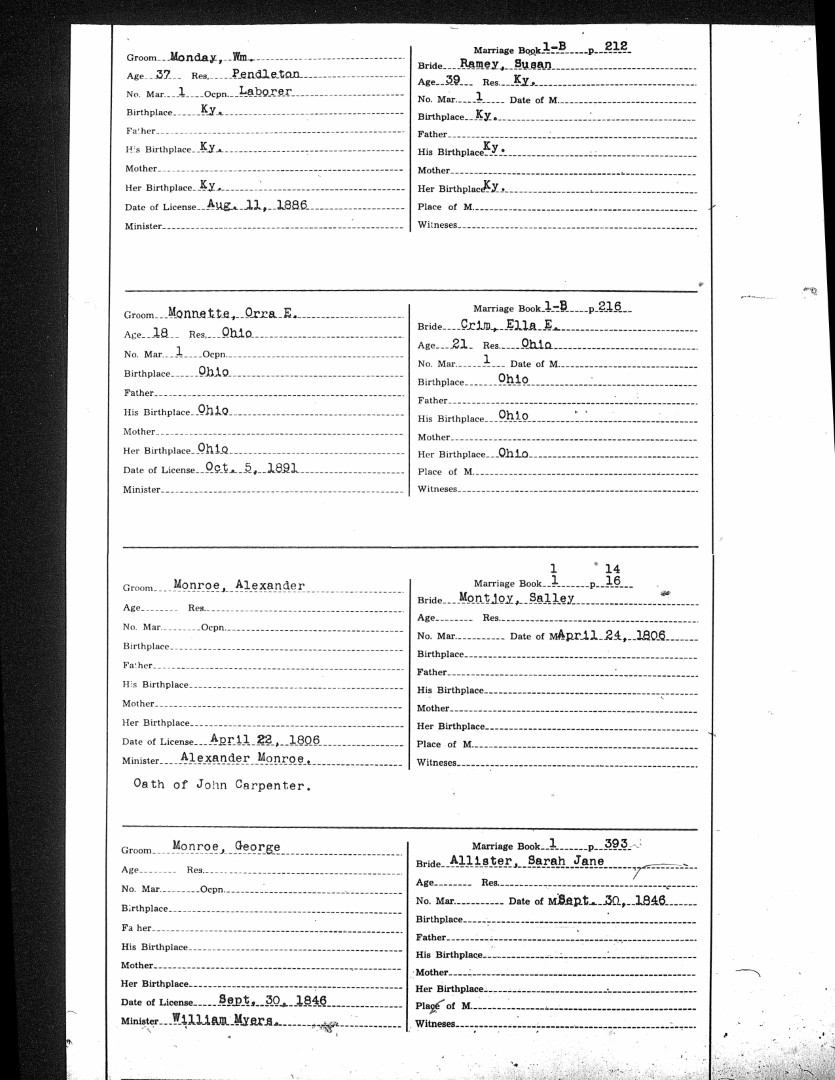 Groom Monday, Wm.
Age 37 Res. Pendleton
No. Mar. 1 Ocpn. Laborer
Birthplace Ky.
Father
His Birthplace Ky.
Mother
Her Birthplace Ky.
Date of License Aug. 11, 1886
Minister
Marriage Book 1-B p. 212
Bride Ramey, Susan
Age 39 Res. Ky.
No. Mar. 1 Date of M.
Birthplace Ky.
Father
His Birthplace Ky.
Mother
Her Birthplace Ky.
Place of M.
Witnesses
Groom Monnette, Orra E.
Age 18 Res. Ohio
No. Mar. 1 Ocpn.
Birthplace Ohio
Father
His Birthplace Ohio
Mother
Her Birthplace Ohio
Date of License Oct. 5, 1891
Minister
Marriage Book 1-B p. 216
Bride Crim, Ella E.
Age 21 Res. Ohio
No. Mar. 1 Date of M.
Birthplace Ohio
Father
His Birthplace Ohio
Mother
Her Birthplace Ohio
Place of M.
Witnesses
Groom Monroe, Alexander
Age Res.
No. Mar. Ocpn.
Birthplace
Father
His Birthplace
Mother
Her Birthplace
Date of License April 22, 1806
Minister Alexander Monroe.
Oath of John Carpenter.
1 14
Marriage Book 1 p. 16
Bride Montjoy, Salley
Age Res.
No. Mar. Date of M. April 24, 1806
Birthplace
Father
His Birthplace
Mother
Her Birthplace
Place of M.
Witnesses
Groom Monroe, George
Age Res.
No. Mar. Ocpn.
Birthplace
Fa her
His Birthplace
Mother
Her Birthplace
Date of License Sept. 30, 1846
Minister William Myers.
Marriage Book 1 p. 393
Bride Allister, Sarah Jane
Age Res.
No. Mar. Date of M. Sept. 30, 1846
Birthplace
Father
His Birthplace
Mother
Her Birthplace
Place of M.
Witnesses